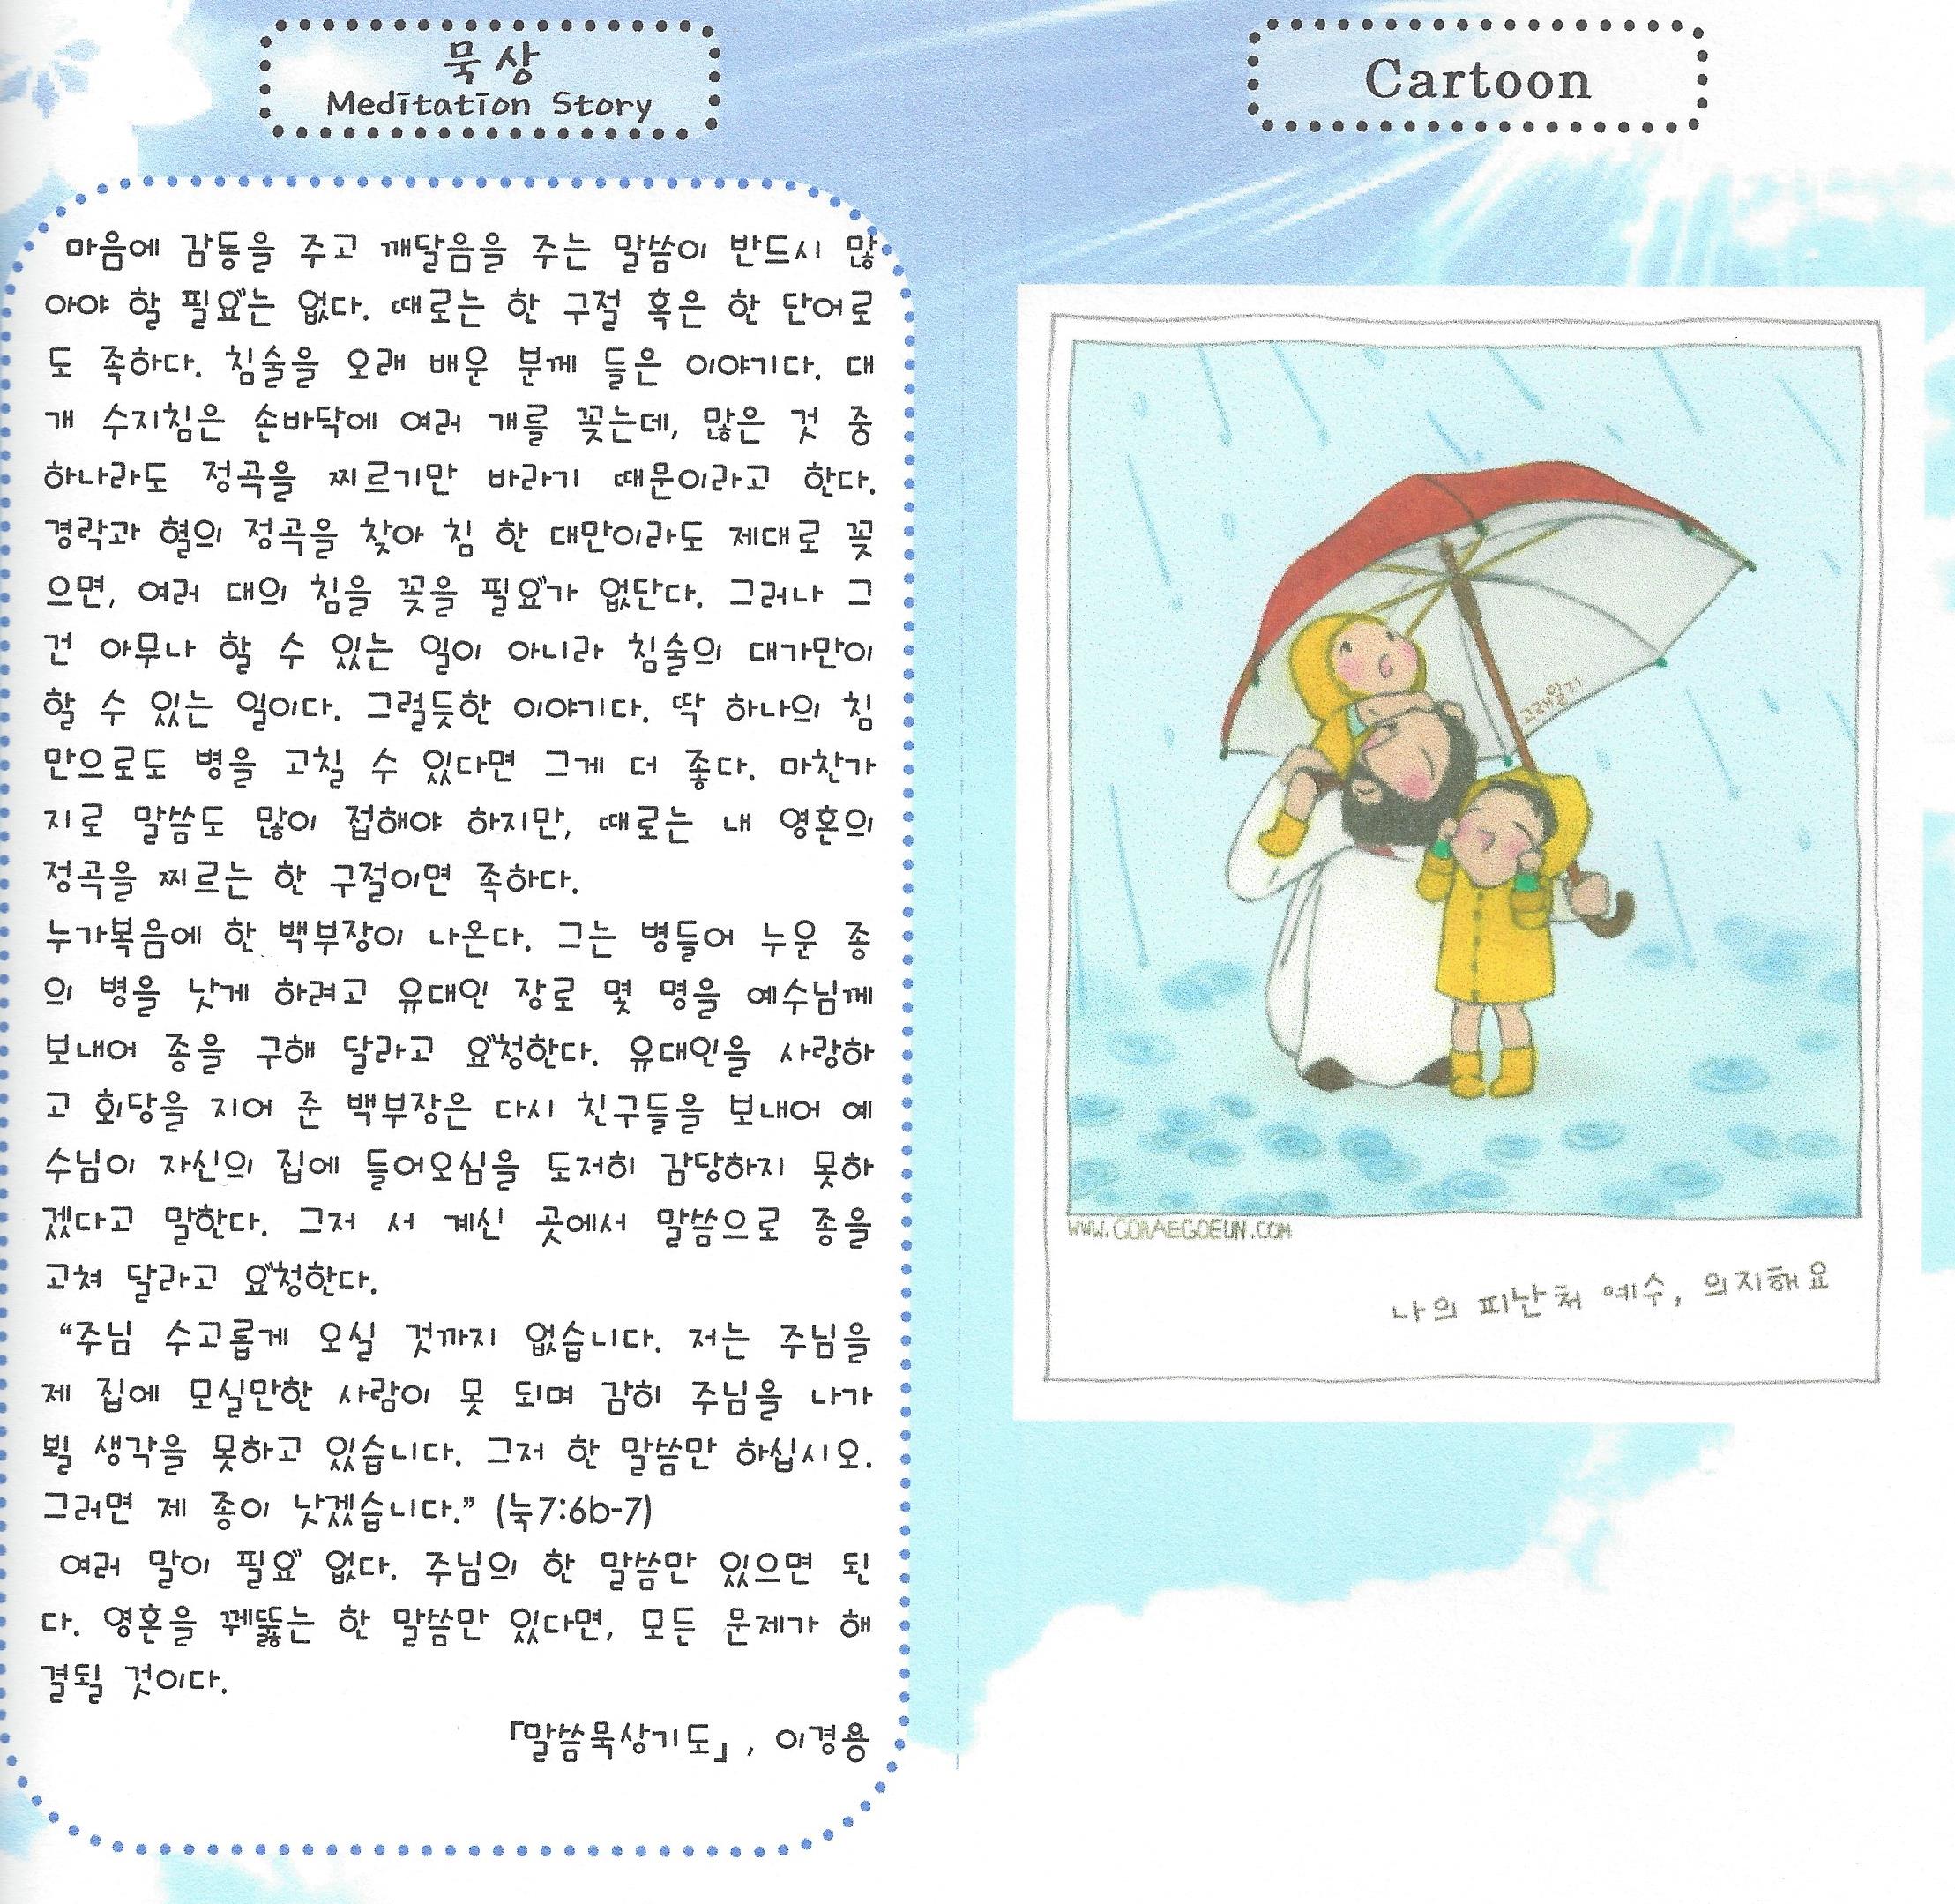 묵상
Meditation Story
마음에 감동을 주고 깨달음을 주는 말씀이 반드시 많
아야 할 필요는 없다. 때로는 한 구절 혹은 한 단어로
도 족하다. 침술을 오래 배운 분께 들은 이야기다. 대
개 수지침은 손바닥에 여러 개를 꽂는데, 많은 것 중
하나라도 정곡을 찌르기만 바라기 때문이라고 한다.
경락과 혈의 정곡을 찾아 침 한 대만이라도 제대로 꽂
으면, 여러 대의 침을 꽂을 필요가 없단다. 그러나 그
건 아무나 할 수 있는 일이 아니라 침술의 대가만이
할 수 있는 일이다. 그럴듯한 이야기다. 딱 하나의 침
만으로도 병을 고칠 수 있다면 그게 더 좋다. 마찬가
지로 말씀도 많이 접해야 하지만, 때로는 내 영혼의
정곡을 찌르는 한 구절이면 족하다.
누가복음에 한 백부장이 나온다. 그는 병들어 누운 종
의 병을 낫게 하려고 유대인 장로 몇 명을 예수님께
보내어 종을 구해 달라고 요청한다. 유대인을 사랑하
고 회당을 지어 준 백부장은 다시 친구들을 보내어 예
수님이 자신의 집에 들어오심을 도저히 감당하지 못하
겠다고 말한다. 그저 서 계신 곳에서 말씀으로 종을
고쳐 달라고 요청한다.
“주님 수고롭게 오실 것까지 없습니다. 저는 주님을
제 집에 모실만한 사람이 못 되며 감히 주님을 나가
뵐 생각을 못하고 있습니다. 그저 한 말씀만 하십시오.
그러면 제 종이 낫겠습니다.” (눅7:6b-7)
여러 말이 필요 없다. 주님의 한 말씀만 있으면 된
다. 영혼을 꿰뚫는 한 말씀만 있다면, 모든 문제가 해
결될 것이다.
「말씀묵상기도」, 이경용
Cartoon
고래일기
WWW.CORAEGOEUN.COM
나의 피난처 예수, 의지해요